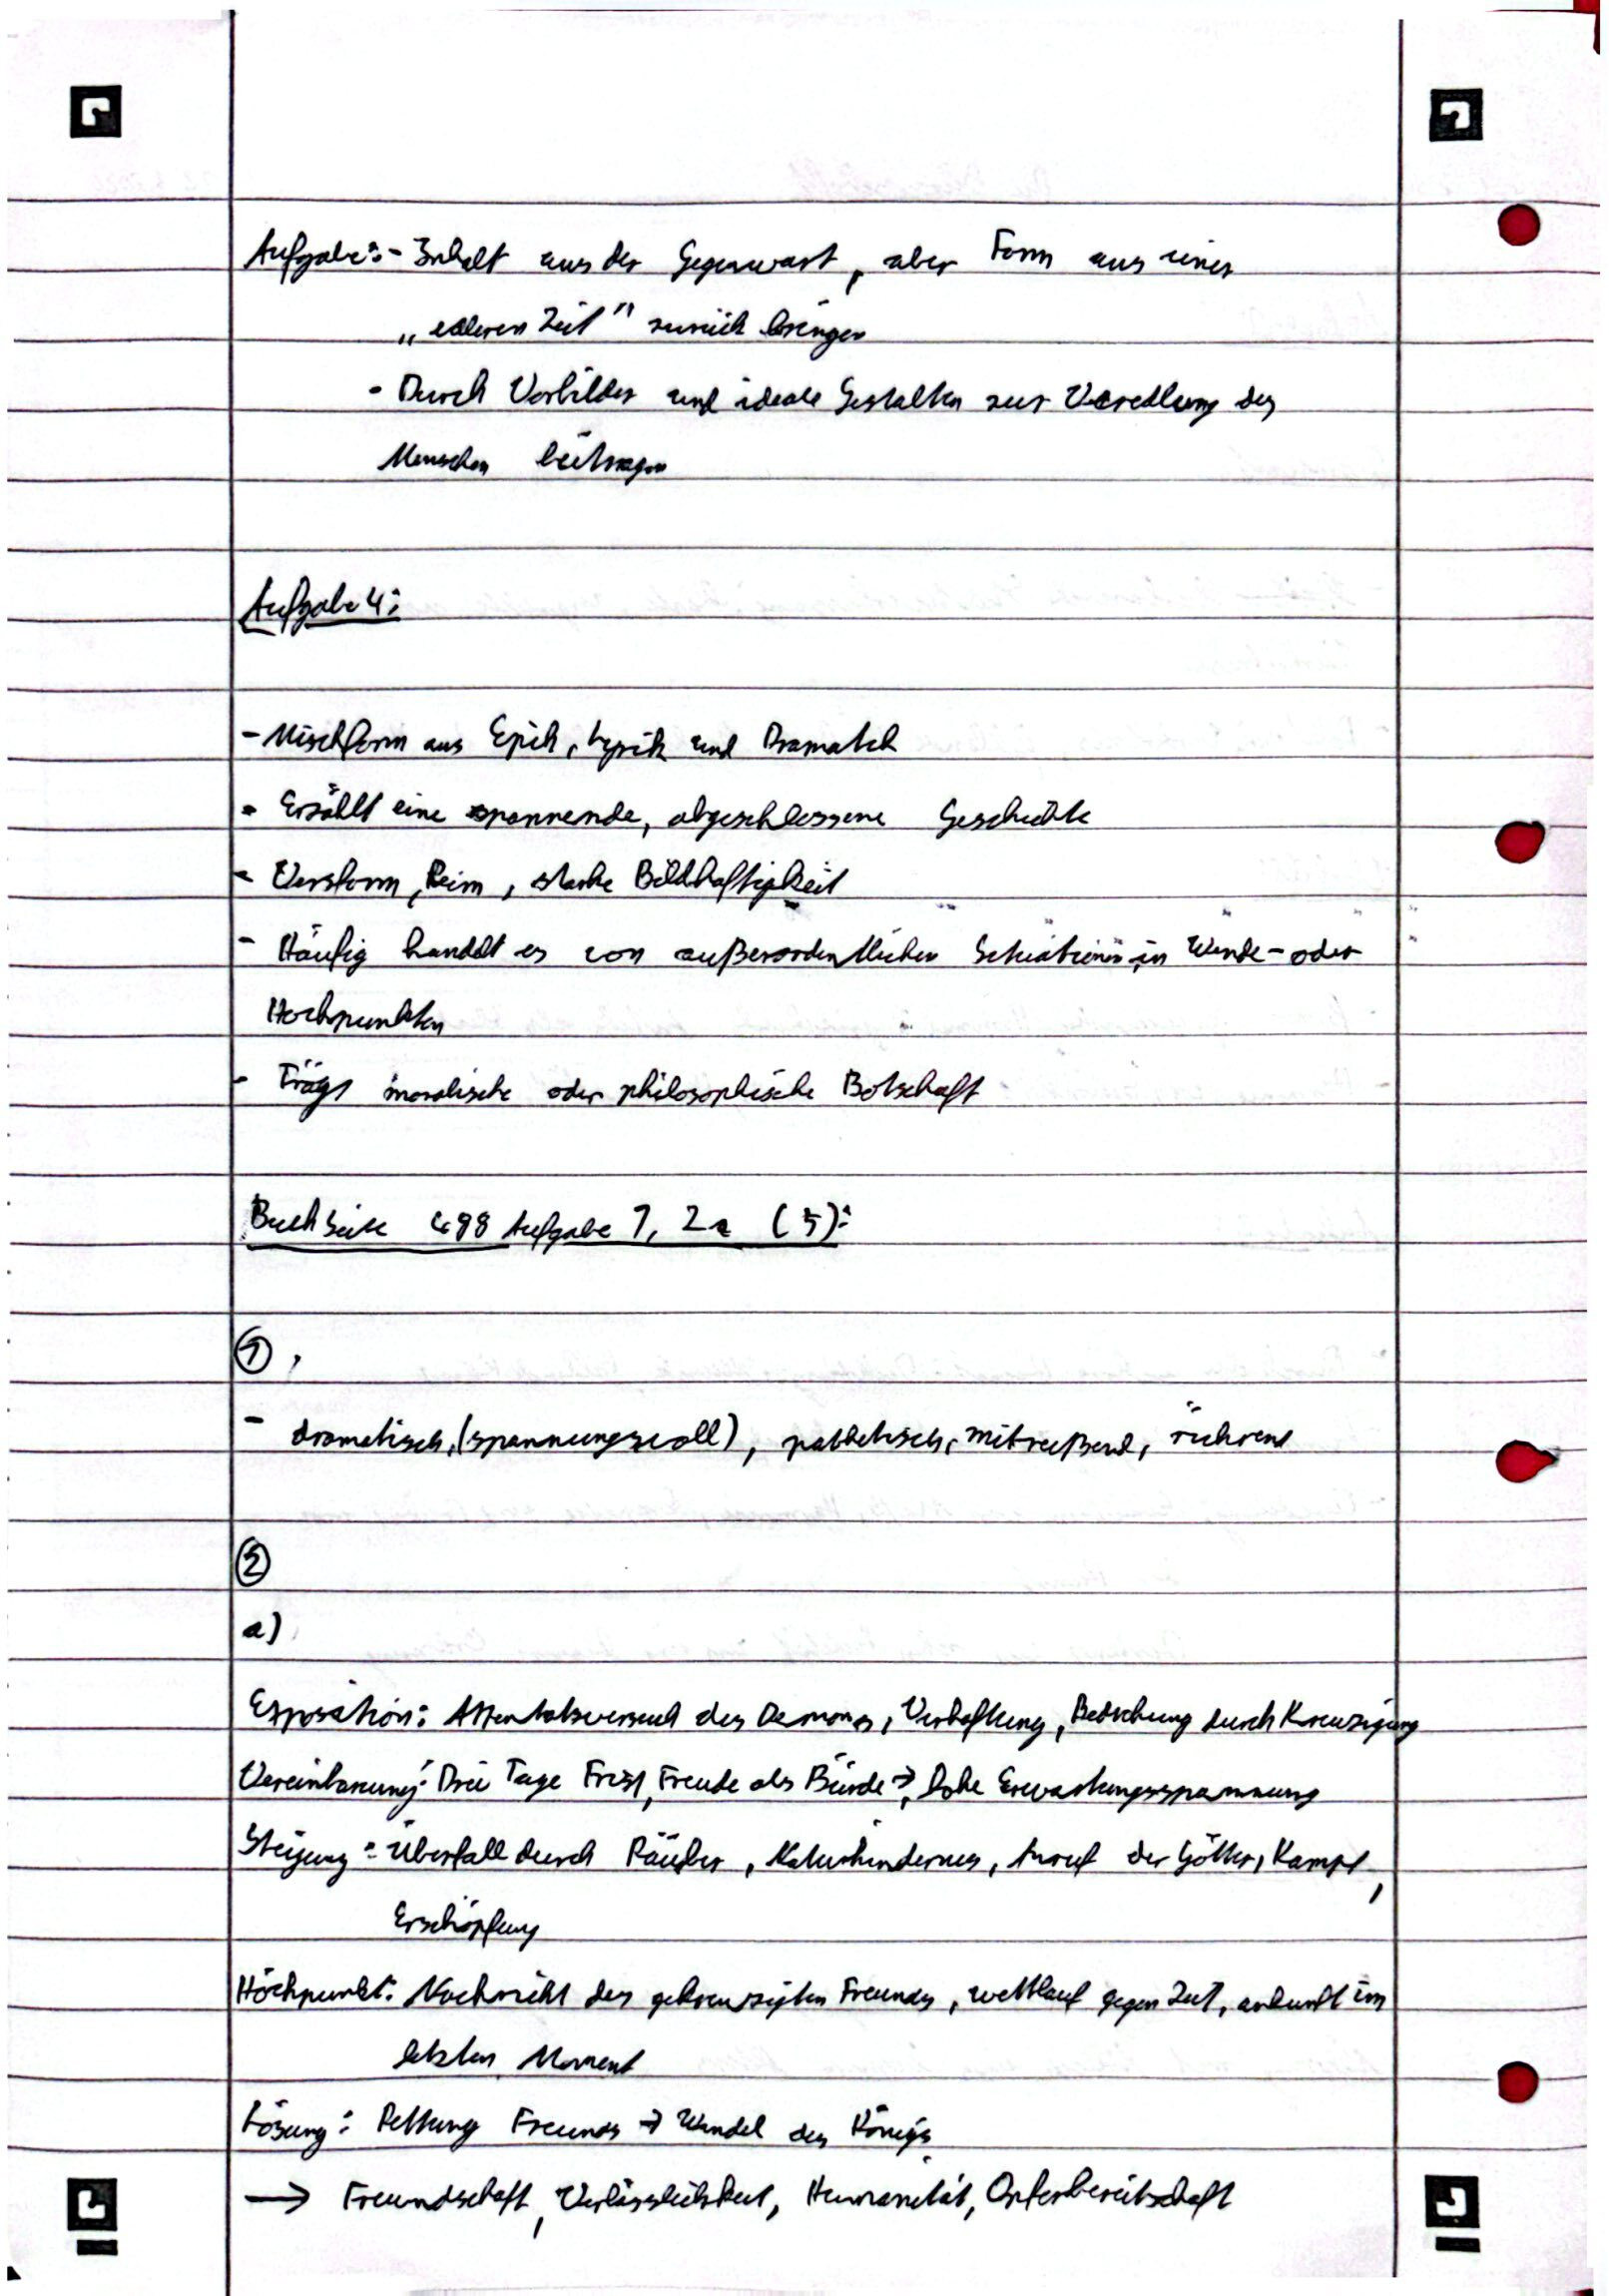 Aufgabe: - Inhalt aus der Gegenwart, aber Form aus einer
„edleren Zeit" zurück bringen
- Durch Vorbilder und ideale Gestalten zur Veredlung des
Menschen beitragen
Aufgabe 4:
- Mischform aus Epik, Lyrik und Dramatik
- Erzählt eine spannende, abgeschlossene Geschichte
- Versform, Reim, starke Bildhaftigkeit
- Häufig handelt es von außerordentlichen Situationen in Wende- oder
Hochpunkten
- Trägt moralische oder philosophische Botschaft
Buchseite 498 Aufgabe 1, 2a (5):
①
- dramatisch, (spannungsvoll), pathetisch, mitreißend, rührend
②
a)
Exposition: Attentatsversuch des Damons, Verhaftung, Bedrohung durch Kreuzigung
Vereinbarung: Drei Tage Frist, Freude als Bürde → hohe Erwartungsspannung
Steigung: Überfall durch Räuber, Naturhindernis, Anruf der Götter, Kampf,
Erschöpfung
Höchpunkt: Nachricht des gekreuzigten Freundes, wettlauf gegen Zeit, ankunft im
letzten Moment
Lösung: Rettung Freunds → Wandel des Königs
→ Freundschaft, Verlässlichkeit, Humanität, Opferbereitschaft